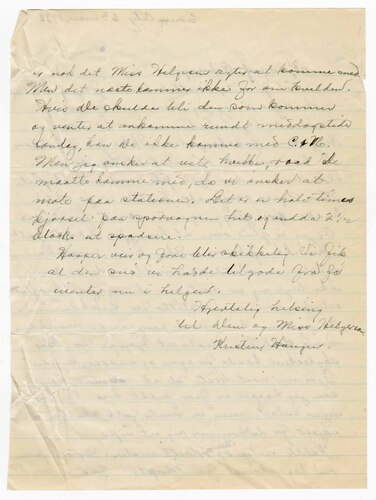 er nok det Miss Helgesen agter at komme med
Men det næste kommer ikke før om kvelden.
Hvis De skulde bli den som kommer
og venter at ankomme rundt middagstide
søndag, kan De ikke komme med
Men jeg ønsker at vite hvilke, road De
maatte komme med, da vi ønsker at
møte paa stationen. Det er en halv times
kjørsel paa sporvognen hit og endda 2 1/2
blocks at spadsere.
Haaper veir og føre blir skikkelig. Vi fik
at den sne vi havde tilgode fra
vinter nu i helgen.
Hjertelig hilsing
til Dem og Miss Helgesen
Kristine Haugen.